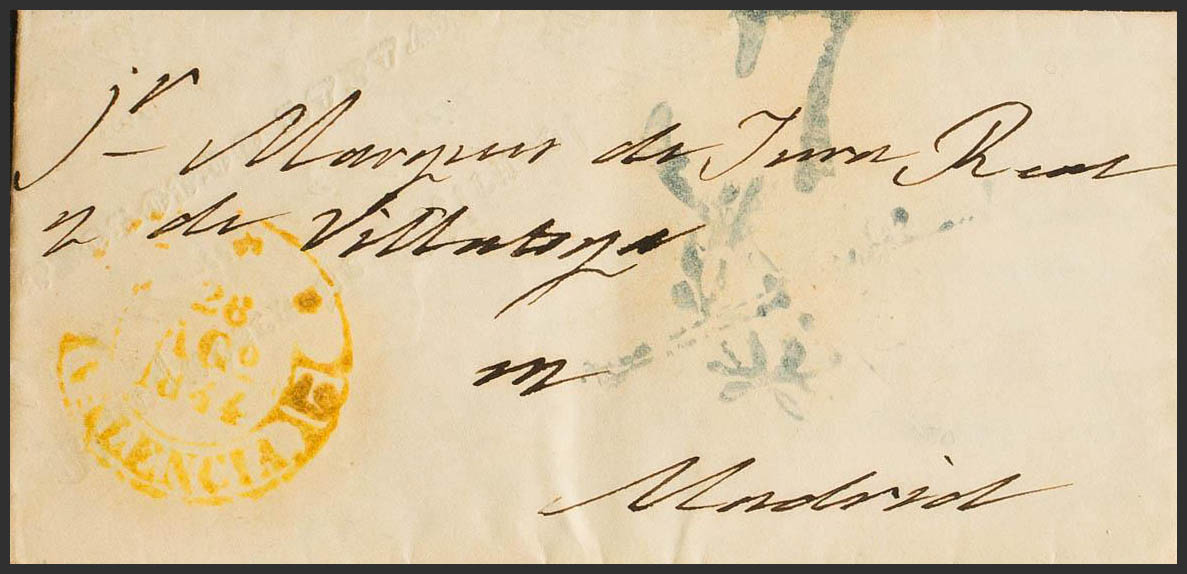 Sr Marques de Jura Real
y de Villatoya
en
Madrid
28
AGO
1854
VALENCIA